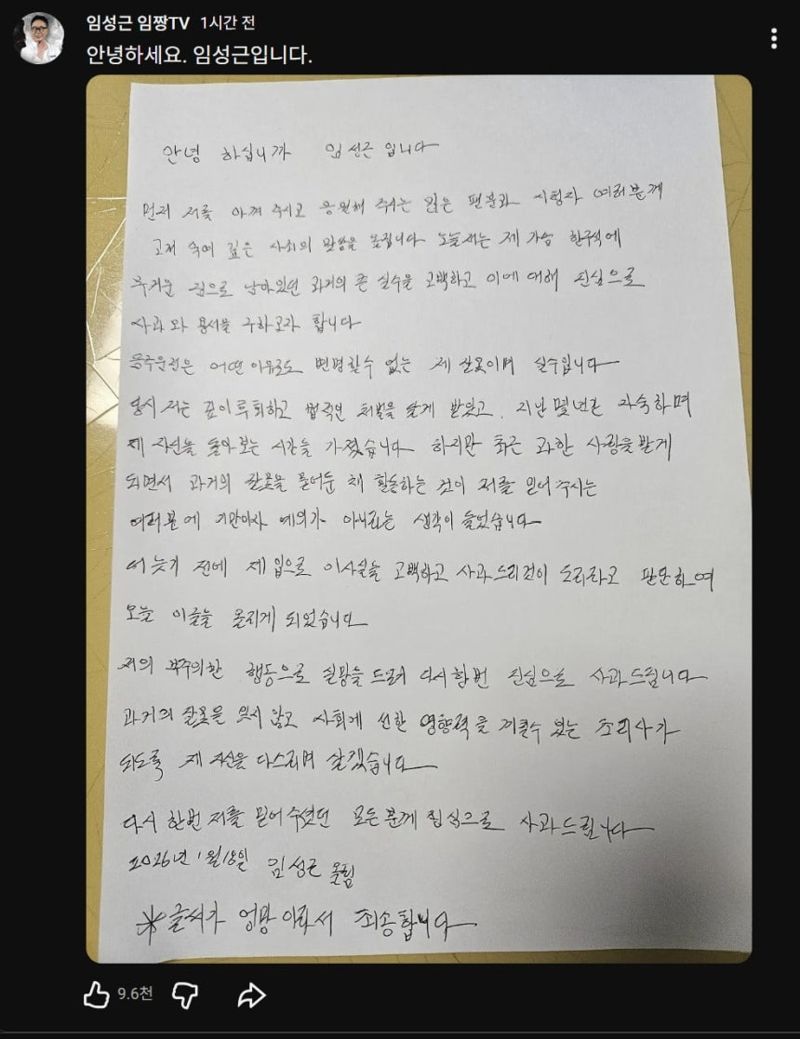 임성근 임짱TV 1시간 전
안녕하세요. 임성근입니다.
안녕 하십니까 임성근 입니다
먼저 저를 아껴 주시고 응원해 주시는 많은 팬분과 시청자 여러분께
고개 숙여 깊은 사죄의 말씀을 올립니다 오늘 저는 제 가슴 한구석에
무거운 짐으로 남아있던 과거의 큰 실수를 고백하고 이에 대해 진심으로
사과와 용서를 구하고자 합니다
음주운전은 어떤 이유로도 변명할수 없는 제 잘못이며 실수입니다
당시 저는 깊이 뉘우치고 법적인 처벌을 달게 받았고, 지난 몇년간 자숙하며
제 자신을 돌아보는 시간을 가졌습니다 하지만 최근 과한 사랑을 받게
되면서 과거의 잘못을 묻어둔 채 활동하는 것이 저를 믿어 주시는
여러분에 기만이자 예의가 아니라는 생각이 들었습니다
더 늦기 전에 제 입으로 이사실을 고백하고 사과드리것이 도리라고 판단하여
오늘 이글을 올리게 되었습니다
저의 부주의한 행동으로 실망을 드려 다시한번 진심으로 사과드립니다
과거의 잘못을 잊지 않고 사회에 선한 영향력을 끼칠수 있는 조리사가
되도록 제 자신을 다스리며 살겠습니다
다시 한번 저를 믿어 주셨던 모든 분께 진심으로 사과드립니다
2026년 1월 18일 임성근 올림
※글씨가 엉망 이라서 죄송합니다
9.6천